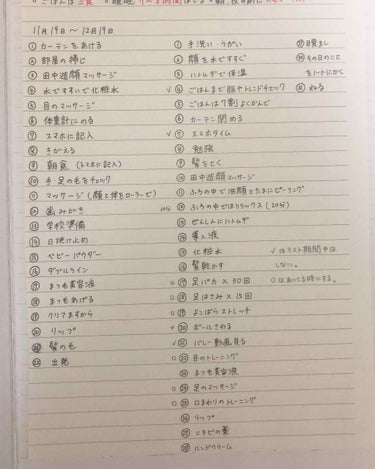 11月19日〜12月19日
① カーテンをあける
② 部屋の掃除
③ 田中造顔マッサージ
④ 水ですすいで化粧水
⑤ 目のマッサージ
⑥ 体重計にのる
⑦ スマホに記入
⑧ きがえる
⑨ 朝食（スマホに記入）
⑩ 手足の毛をチェック
⑪ マッサージ（顔と体をローラーで）
⑫ 歯みがき
⑬ 学校準備
⑭ 日焼け止め
⑮ ベビーパウダー
⑯ ダブルライン
⑰ まつも美容液
⑱ まつもあげる
⑲ クリアますから
⑳ リップ
㉑ 髪の毛
㉒ 出発
① 手洗いうがい
② 顔を水ですすぐ
③ ハトムギで保湿
✓ ④ 夜ごはんまで服やトレンドチェック
⑤ ごはんは7割よくかんで
⑥ カーテン閉める
✓ ⑦ スマホタイム
⑧ 勉強
⑨ 髪をとく
⑩ 田中造顔マッサージ
⑪ ふろの中で洗顔とたまにピーリング
⑫ ふろの中ではリラックス（20分）
⑬ ぜんしんにハトムギ
⑭ 導入液
⑮ 化粧水
⑯ 髪乾かす
○ ⑰ 足パカ×30回
○ ⑱ 足はさみ×15回
○ ⑲ よこばらストレッチ
✓ ⑳ ボールさわる
✓ ㉑ バレー動画見る
○ ㉒ 目のトレーニング
㉓ まつも美容液
○ ㉔ 足のマッサージ
○ ㉕ 口まわりのトレーニング
㉖ リップ
㉗ ニキビの薬
㉘ ハンドクリーム
㉙ 目覚まし
㉚ その日のこと
をノートにかく
㉛ ねる
✓はテスト期間中は
しない。
○はあいてる時にする。